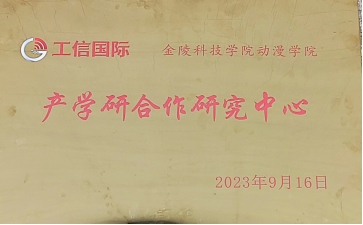 工信国际 金陵科技学院动漫学院
产学研合作研究中心
2023年9月16日